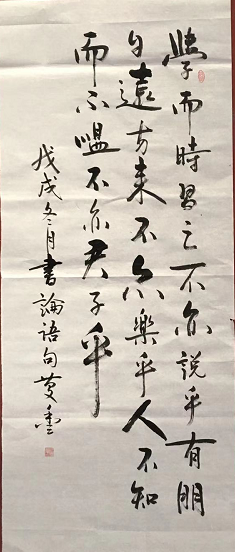 學而時習之不亦說乎有朋
自遠方來不亦樂乎人不知
而不慍不亦君子乎
戊戌冬月書論语句